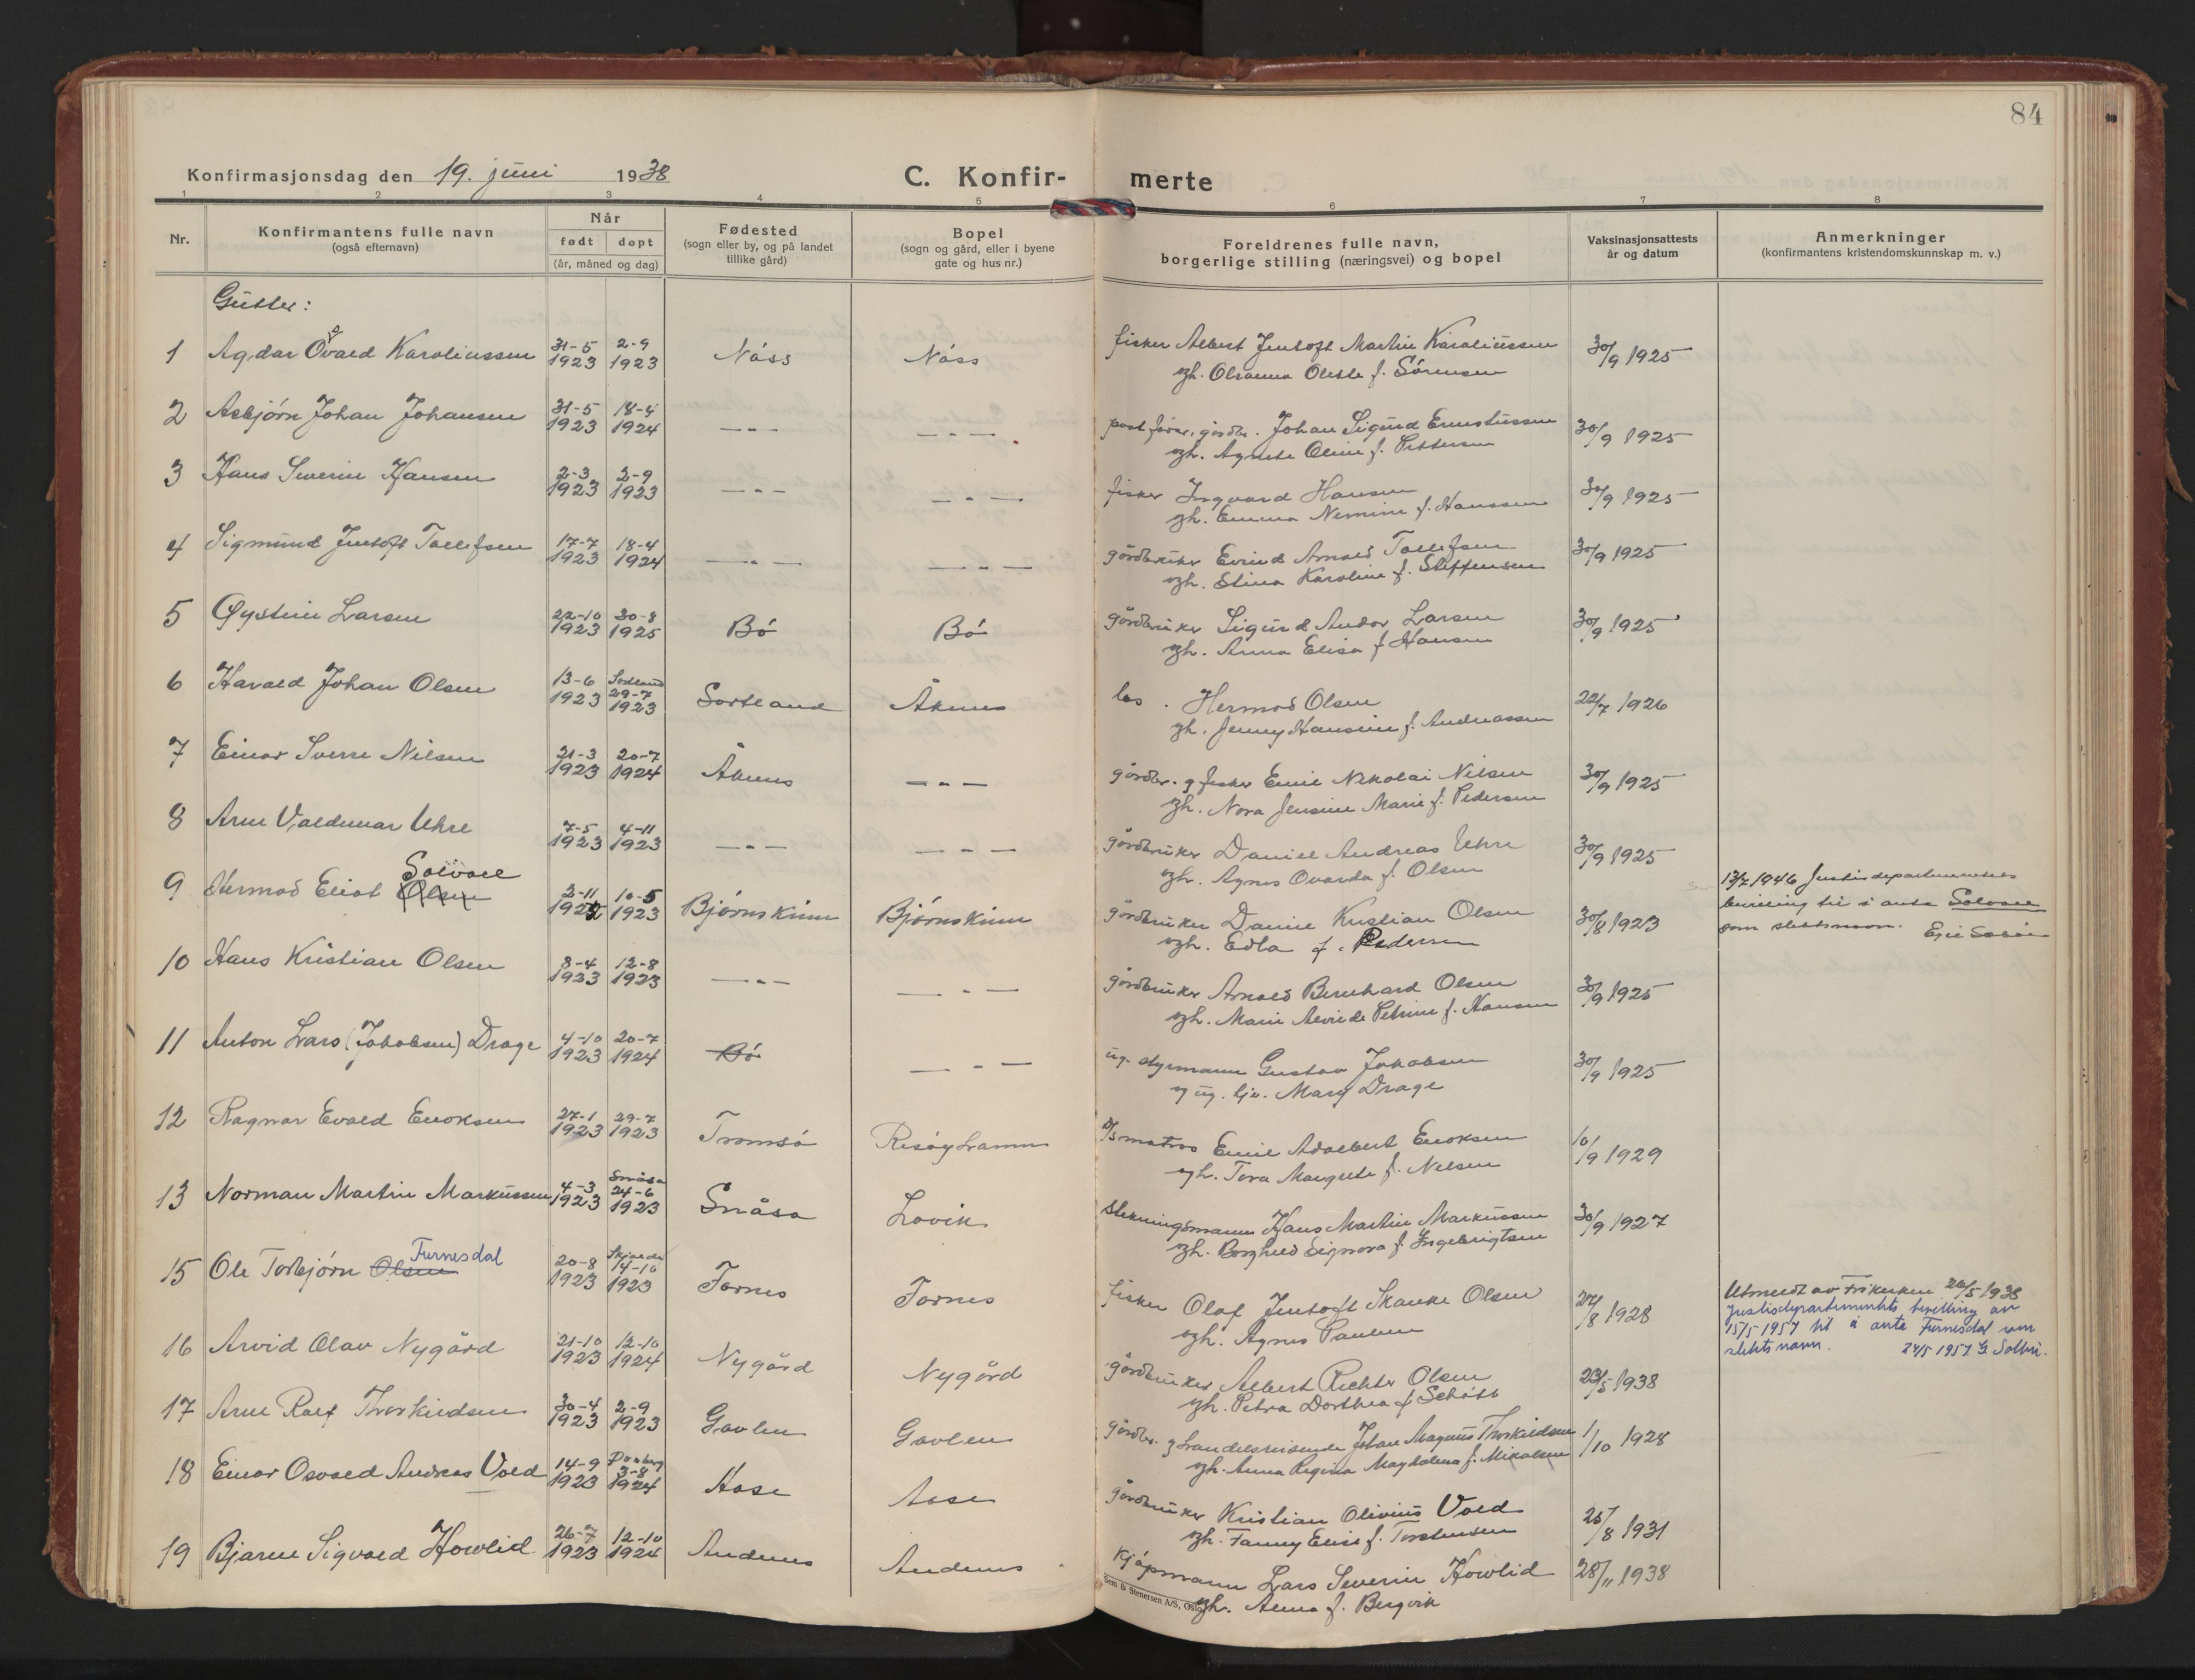 84
Konfirmasjonsdag den 19. juni 1938
C. Konfir- merte
1 2 3 4 5 6 7 8
Nr.
Konfirmantens fulle navn
(også efternavn)
Når
født døpt
(år, måned og dag)
Fødested
(sogn eller by, og på landet
tillike gård)
Bopel
(sogn og gård, eller i byene
gate og hus nr.)
Foreldrenes fulle navn,
borgerlige stilling (næringsvei) og bopel
Vaksinasjonsattests
år og datum
Anmerkninger
(konfirmantens kristendomskunnskap m. v.)
Gutter:
1 Agdar Ovald Karoliussen 31-5 1923 2-9 1923 Nóss Nóss fisker Albert Jentoft Martin Karoliussen 30/9 1925
gh. Olsanna Olette f. Sörensen
2 Asbjórn Johan Johansen 31-5 1923 18-4 1924 — " — — " — postfører, gårdbr. Johan Sigurd Ernstussen 30/9 1925
gh. Agnete Oline f. Pettersen
3 Hans Severin Hansen 2-3 1923 2-9 1923 — " — — " — fisker Ingvard Hansen 30/9 1925
gh. Emma Nernine f. Hanssen
4 Sigmund Jentoft Tollefsen 17-7 1923 18-4 1924 — " — — " — gårdbruker Eivind Arnold Tollefsen 30/9 1925
gh. Stina Karoline f. Steffensen
5 Øystein Larsen 22-10 1923 30-8 1925 Bó Bó gårdbruker Sigurd Andor Larsen 30/9 1925
gh. Anna Elisa f Hansen
6 Harald Johan Olsen 13-6 1923 Sortland 29-7 1923 Sortland Åknes løs . Hermod Olsen 22/7 1926
gh. Jenny Hansine f. Andreassen
7 Einar Sverre Nilsen 21-3 1923 20-7 1924 Åknes — " — gårdbr. g fisker Emil Nikolai Nilsen 30/9 1925
gh. Nora Jensine Marie f. Pedersen
8 Arne Valdemar Uhre 7-5 1923 4-11 1923 — " — — " — gårdbruker Daniel Andreas Uhre 30/9 1925
gh. Agnes Ovarda f. Olsen
9 Hermod Eliot Olsen Solvoll 2-11 1922 10-5 1923 Bjórnskinn Bjórnskinn gårdbruker Daniel Kristian Olsen 30/8 1923
gh. Edla f. Pedersen
13/7 1946 Justisdepartementets
bevilling til å anta Solvoll
som slektsnavn.
10 Hans Kristian Olsen 8-4 1923 12-8 1923 — " — — " — gårdbruker Arnold Bernhard Olsen 30/9 1925
gh. Marie Alvide Petrine f. Hansen
11 Anton Lars (Jakobsen) Drage 4-10 1923 20-7 1924 Bó — " — ug. styrmann Gustav Jakobsen 30/9 1925
g ug. tjn. Mary Drage
12 Ragnar Evald Enoksen 27-1 1923 29-7 1923 Tromsó Risøyhamn matros Emil Adalbert Enoksen 10/9 1929
gh. Tora Margrete f. Nelsen
13 Norman Martin Markussen 4-3 1923 Snåsa 24-6 1923 Snåsa Lovik stekningsmann Hans Martin Markussen 30/9 1927
gh. Borghild Signora f. Ingebrigtsen
15 Ole Torbjórn Olsen Furnesdal 20-8 1923 14-10 1923 Fornes Fornes fisker Olaf Jentoft Skanke Olsen 27/8 1928
gh. Agnes Paulsen
Utmeldt av Frikirken 24/5 1938
Justisdepartementets bevilling av
15/5 1957 til å anta Furnesdal som
slektsnavn. 24/5 1957
16 Arvid Olav Nygård 21-10 1923 12-10 1924 Nygård Nygård gårdbruker Albert Richter Olsen 23/5 1938
gh. Petra Dorthea f Schótt
17 Arne Rolf Thorkildsen 30-4 1923 2-9 1923 Gavlen Gavlen gårdbr. g handelsreisende Johan Magnus Thorkildsen 1/10 1928
gh. Anna Regina Magdalena f. Mikalsen
18 Einar Osvald Andreas Vold 14-9 1923 3-8 1924 Aase Aase gårdbruker Kristian Olivius Vold 25/8 1931
gh. Fanny Elise f. Torstensen
19 Bjarne Sigvald Howlid 26-7 1923 12-10 1924 Andenes Andenes kjópmann Lars Severin Howlid 28/11 1938
gh. Alma f. Bergvik
Sem & Stenersen A/S, Oslo